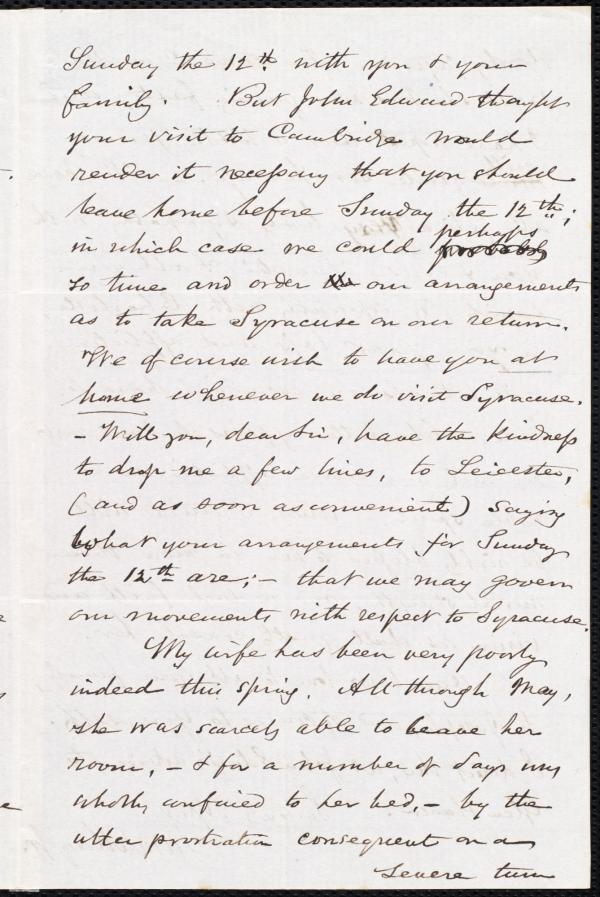 Sunday the 12th. with you & your
family. But John Edward thought
your visit to Cambridge would
render it necessary that you should
leave home before Sunday the 12th;
perhaps
in which case we could probably
so time and order our arrangements
as to take Syracuse on our return.
We of course wish to have you at
home whenever we do visit Syracuse.
- Will you, dear Sir, have the kindness
to drop me a few lines, to Leicester,
(and as soon as convenient) saying
what your arrangements for Sunday
the 12th are; - that we may govern
our movements with respect to Syracuse.
My wife has been very poorly
indeed this spring. All through May,
she was scarcely able to leave her
room, - & for a number of days was
wholly confined to her bed, - by the
utter prostration consequent on a
severe turn